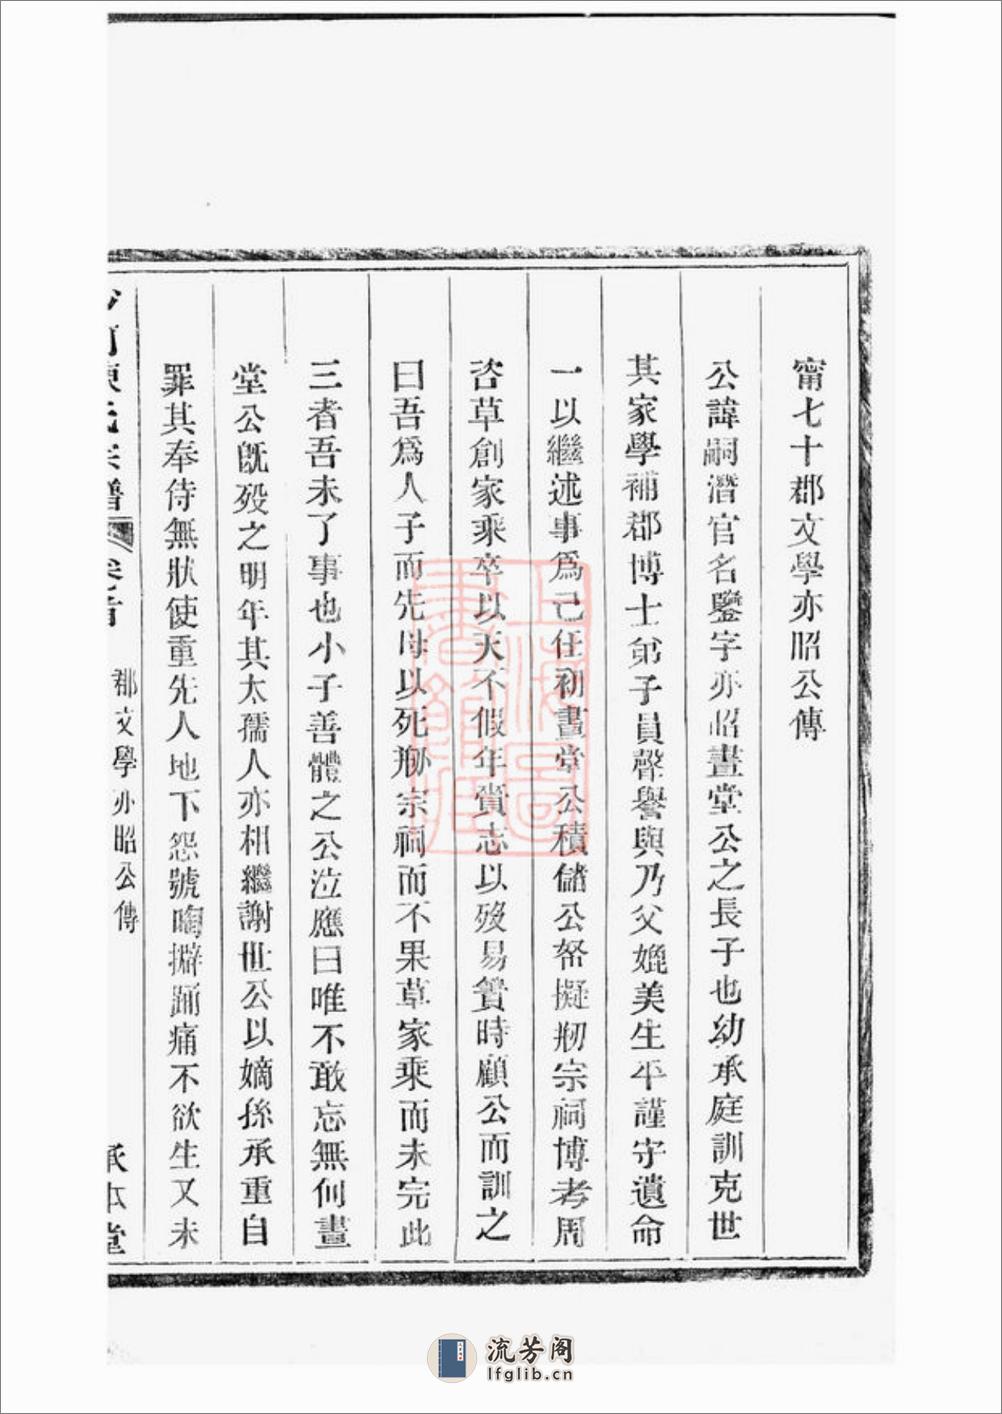 甯七十郡文學亦昭公傳
公諱嗣潛官名鑒字亦昭畫堂公之長子也幼承庭訓克世
其家學補郡博士弟子員聲譽與乃父媲美生平謹守遺命
一以繼述事爲己任初畫堂公積儲公帑擬剏宗祠博考周
咨草創家乘卒以天不假年賫志以歿易簀時顧公而訓之
曰吾爲人子而先母以死剏宗祠而不果草家乘而未完此
三者吾未了事也小子善體之公泣應曰唯不敢忘無何畫
堂公旣歿之明年其太孺人亦相繼謝世公以嫡孫承重自
罪其奉侍無狀使重先人地下怨號啕擗踊痛不欲生又未
氏宗譜
卷首
郡文學亦昭公傳
承本堂
上海圖書館藏
流芳阁
lfglib.cn